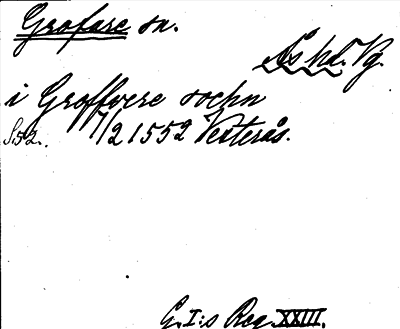 Grofare sn.
Ås hd. Vg.
i Groffvere sochn
S. 52. 17/2 1552 Vesterås.
G. I:s Reg. XXIII.